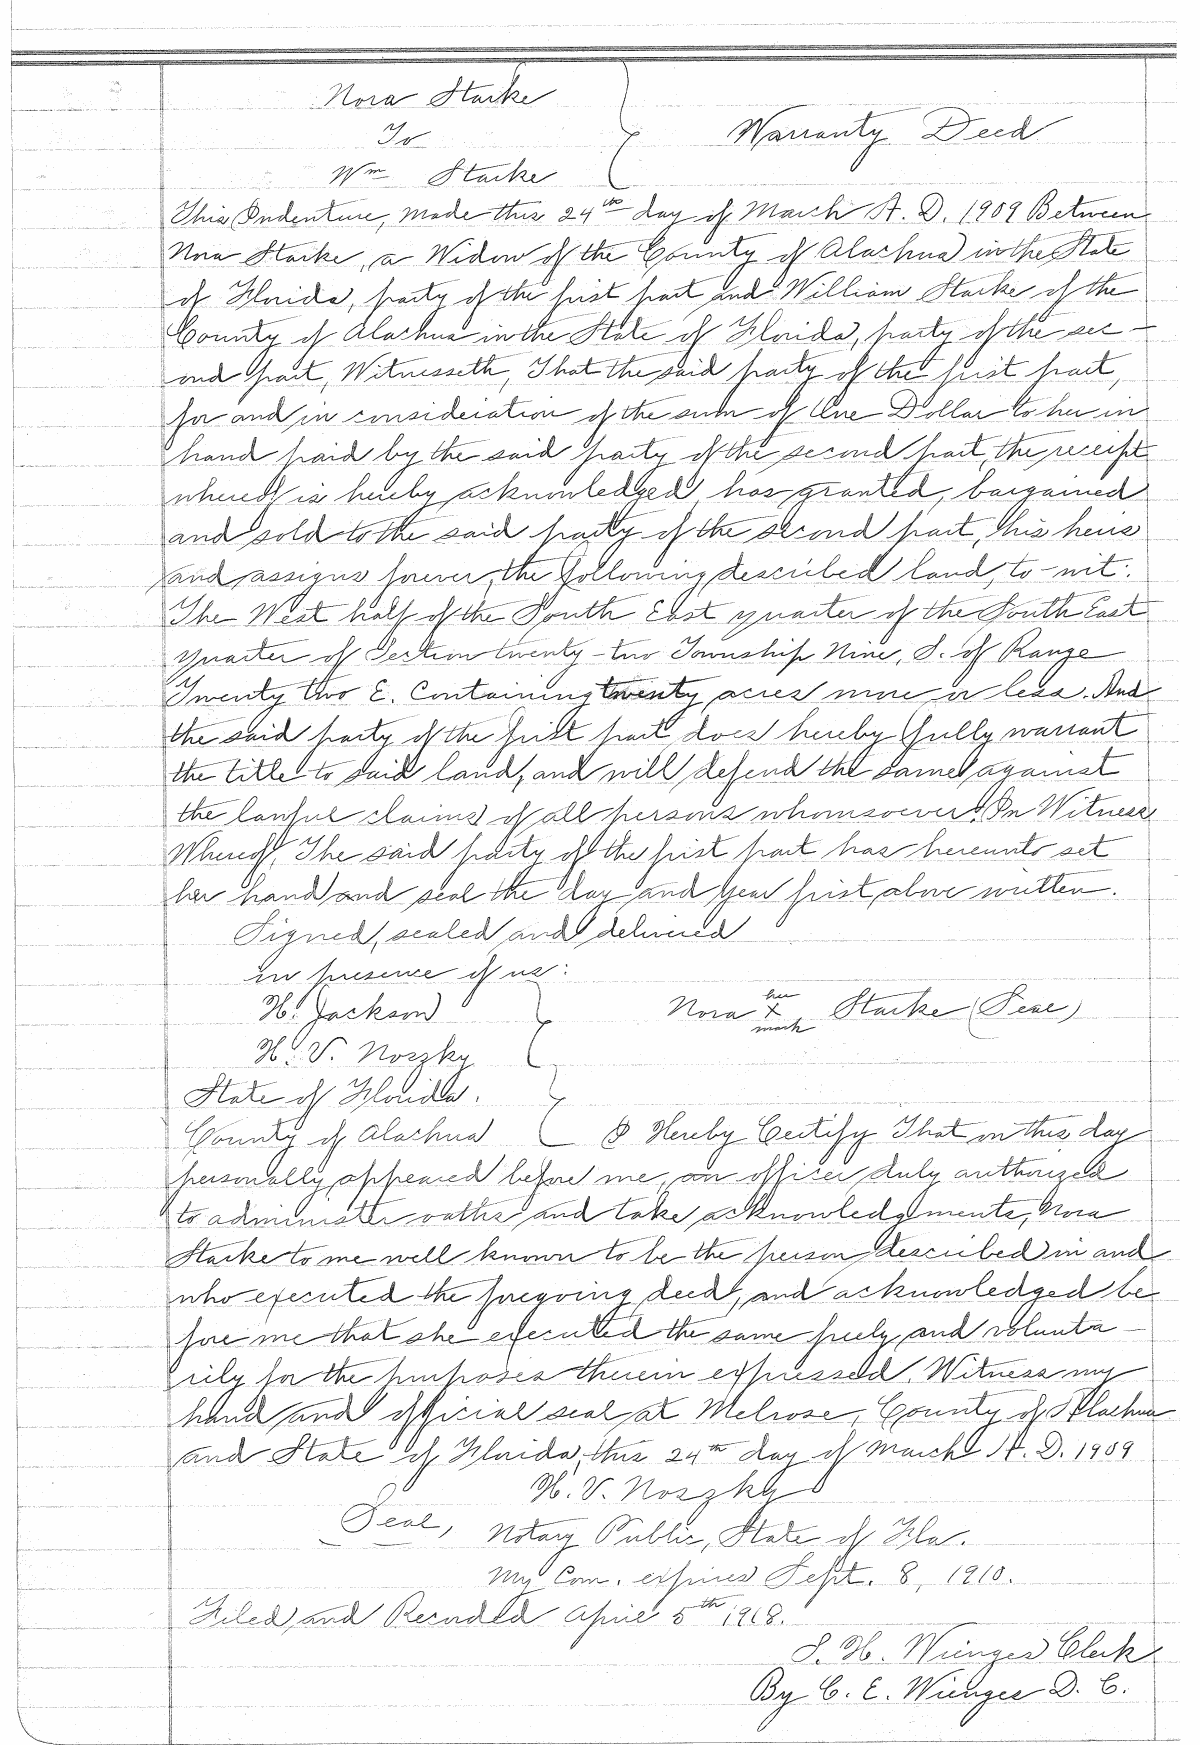 Nora Starke
To
Wm Starke
Warranty Deed
This Indenture, made this 24th day of March A. D. 1909 Between
Nora Starke, a Widow of the County of Alachua in the State
of Florida, party of the first part and William Starke of the
County of Alachua in the State of Florida, party of the sec-
ond part, Witnesseth, That the said party of the first part,
for and in consideration of the sum of One Dollar to her in
hand paid by the said party of the second part, the receipt
whereof is hereby acknowledged, has granted, bargained
and sold to the said party of the second part, his heirs
and assigns forever, the following described land, to-wit:
The West half of the South East quarter of the South East
quarter of Section twenty-two Township Nine, S. of Range
Twenty two E. Containing twenty acres more or less. And
the said party of the first part does hereby fully warrant
the title to said land, and will defend the same against
the lawful claims of all persons whomsoever. In Witness
Whereof, The said party of the first part has hereunto set
her hand and seal the day and year first above written.
Signed, sealed and delivered
in presence of us:
H. Jackson
Nora her X mark Starke (Seal)
H. V. Noszky
State of Florida.
County of Alachua I Hereby Certify That on this day
personally appeared before me, an officer duly authorized
to administer oaths and take acknowledgments, Nora
Starke to me well known to be the person described in and
who executed the foregoing deed, and acknowledged be
fore me that she executed the same freely and volunta-
rily for the purposes therein expressed. Witness my
hand and official seal at Melrose, County of Alachua
and State of Florida, this 24th day of March A. D. 1909
H. V. Noszky
Seal, Notary Public, State of Fla.
My Com. expires Sept. 8, 1910.
Filed and Recorded April 5th 1918.
S. H. Wienges Clerk
By C. E. Wienges D. C.